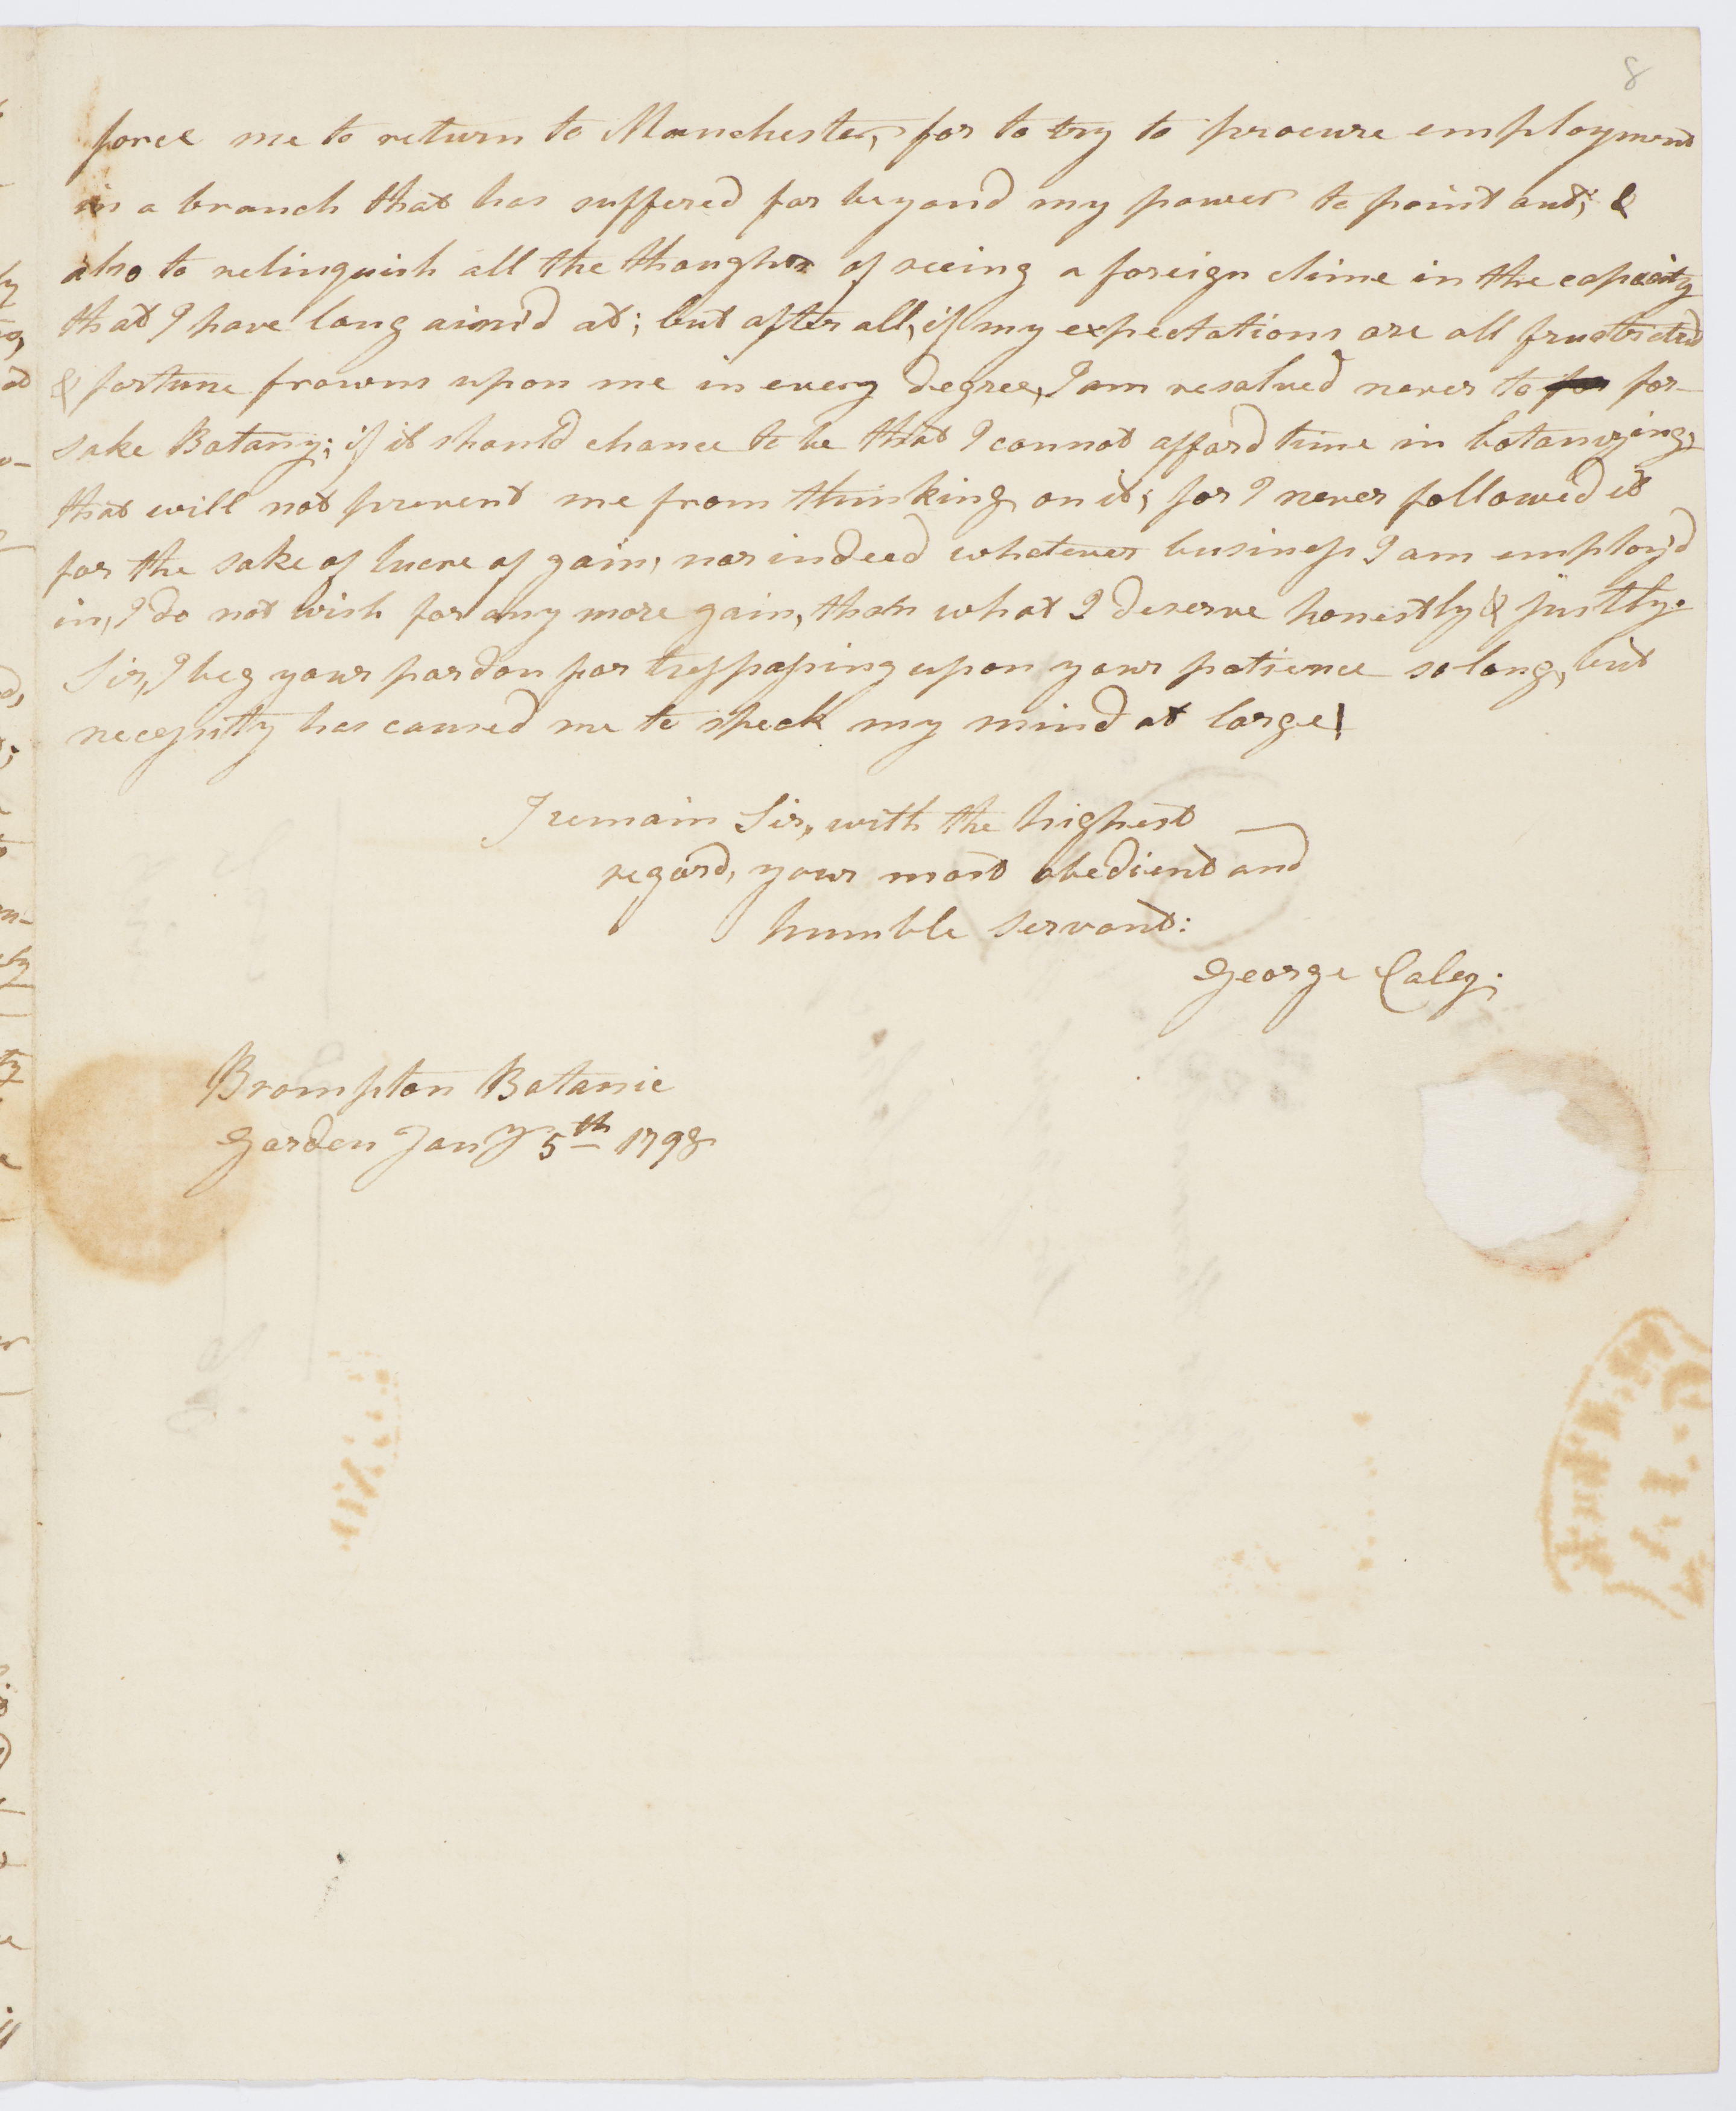 8
force me to return to Manchester, for to try to procure employment
in a branch that has suffered far beyond my power to point out; &
also to relinquish all the thoughts of seeing a foreign clime in the capacity
that I have long aim'd at; but after all, if my expectations are all frustrated
& fortune frowns upon me in every degree, I am resolved never to for for-
sake Botany; if it should chance to be that I cannot afford time in botanizing,
that will not prevent me from thinking on it; for I never followed it
for the sake of lucre of gain; nor indeed whatever business I am employ'd
in, I do not wish for any more gain, than what I deserve honestly & justly.
Sir, I beg your pardon for tresspassing upon your patience so long, but
necessity has caused me to speek my mind at large!
I remain Sir, with the highest
regard, your most obedient and
humble servant:
George Caley.
Brompton Botanic
Garden Jany 5th 1798